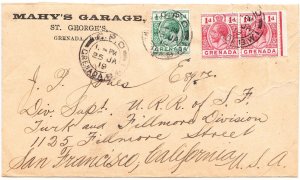 MAHY'S GARAGE,
ST. GEORGE'S,
GRENADA
GRENADA
GRENADA
GRENADA
25 JA
19
GRENADA
J. P. Jones Esqre.
Div. Supt. U.R.R. of S.F.
Turk and Fillmore Division
1125 Fillmore Street
San Francisco, California,
U.S.A.